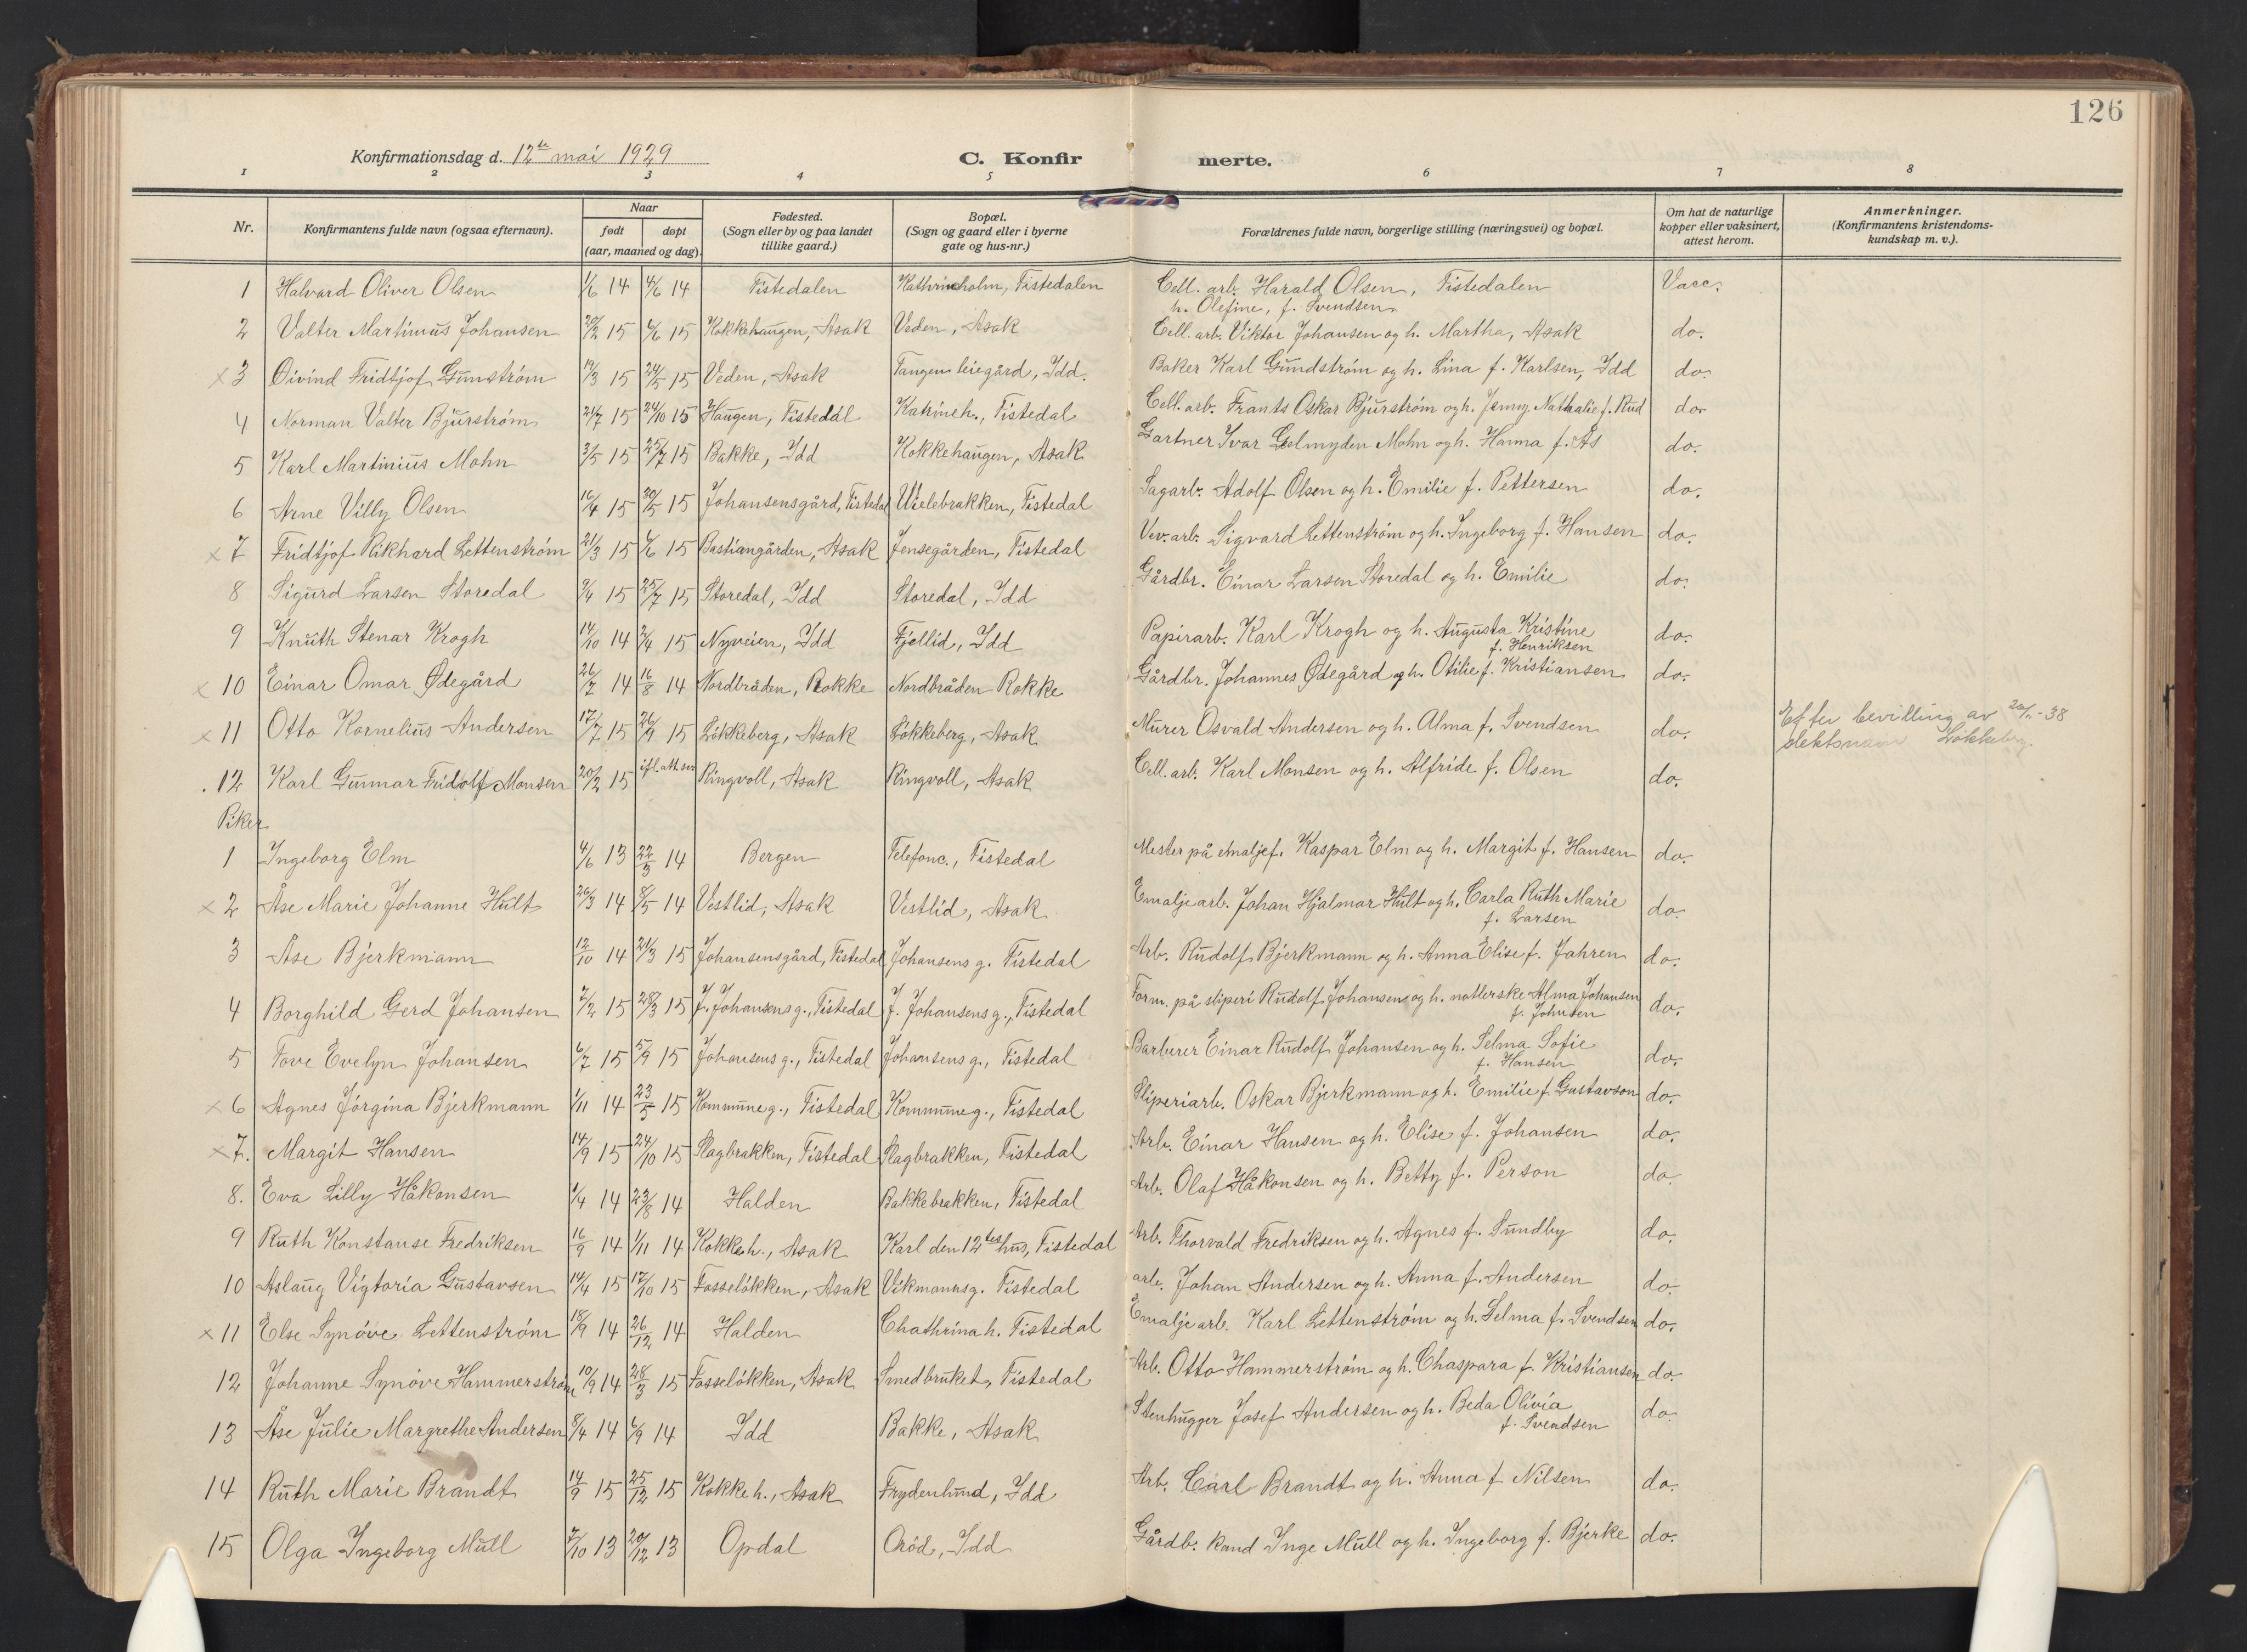 126
Konfirmationsdag d. 12te mai 1929 C. Konfir merte.
1 2 3 4 5 6 7 8
Nr. Konfirmantens fulde navn (ogsaa efternavn). Naar født døpt (aar, maaned og dag). Fødested. (Sogn eller by og paa landet tillike gaard.) Bopæl. (Sogn og gaard eller i byerne gate og hus-nr.) Forældrenes fulde navn, borgerlige stilling (næringsvei) og bopæl. Om hat de naturlige kopper eller vaksinert, attest herom. Anmerkninger. (Konfirmantens kristendoms-kundskap m. v.).
1 Halvard Oliver Olsen 1/6 14 4/6 14 Tistedalen Kathrineholm, Tistedalen Cell. arb. Harald Olsen, Tistedalen Vacc.
h. Olefine, f. Svendsen
2 Valter Martinus Johansen 20/2 15 6/6 15 Kokkehaugen, Asak Veden, Asak Cell. arb. Viktor Johansen og h. Martha, Asak do.
x 3 Øivind Fridtjof Gumström 19/3 15 24/5 15 Veden, Asak Tangen leiegård, Idd. Baker Karl Gundström og h. Lina f. Karlsen, Idd do.
4 Norman Valter Bjurström 21/7 15 24/10 15 Haugen, Tistedal Katrineh., Tistedal Cell. arb. Frants Oskar Bjurström og h. Jenny Nathalie f. Rud do.
5 Karl Martinius Mohn 3/5 15 25/7 15 Bakke, Idd Kokkehaugen, Asak Gartner Ivar Gelmyden Mohn og h. Hanna f. Ås do.
6 Arne Villy Olsen 16/4 15 30/5 15 Johansensgård, Tistedal Uielebrakken, Tistedal Sagarb. Adolf Olsen og h. Emilie f. Pettersen do.
x 7 Fridtjof Rikhard Lettenström 21/3 15 6/6 15 Bastiangården, Asak Jensegården, Tistedal Vev. arb. Sigvard Lettenström og h. Ingeborg f. Hansen do.
8 Sigurd Larsen Storedal 9/4 15 25/7 15 Storedal, Idd Storedal, Idd Gårdbr. Einar Larsen Storedal og h. Emilie do.
9 Knuth Stenar Krogh 14/10 14 2/4 15 Nyveien, Idd Fjellid, Idd Papirarb. Karl Krogh og h. Augusta Kristine do.
f. Henriksen
x 10 Einar Omar Ødegård 26/7 14 16/8 14 Nordbråden, Rokke Nordbråden Rokke Gårdbr. Johannes Ødegård og h. Otilie f. Kristiansen do.
x 11 Otto Kornelius Andersen 17/7 15 26/9 15 Lökkeberg, Asak Lökkeberg, Asak Murer Osvald Andersen og h. Alma f. Svendsen do. Efter bevilling av 20/1-38
slektsnavn Lökkeberg.
12 Karl Gunnar Fridolf Monsen 20/2 15 ifl. attser Ringvoll, Asak Ringvoll, Asak Cell. arb. Karl Monsen og h. Alfride f. Olsen do.
Piker
1 Ingeborg Elm 4/6 13 22/3 14 Bergen Telefonc., Tistedal Mester på emaljef. Kaspar Elm og h. Margit f. Hansen do.
x 2 Åse Marie Johanne Hult 26/3 14 8/5 14 Vestlid, Asak Vestlid, Asak Emalje arb. Johan Hjalmar Hult og h. Carla Ruth Marie do.
f. Larsen
3 Åse Bjerkmann 12/10 14 21/3 15 Johansensgård, Tistedal Johansens g. Tistedal Arb. Rudolf Bjerkmann og h. Anna Elise f. Jahren do.
4 Borghild Gerd Johansen 7/2 15 28/3 15 J. Johansens g., Tistedal J. Johansens g., Tistedal Form. på sliperi Rudolf Johansen og h. notlerske Alma Johansen do.
f. Johnsen
5 Tove Evelyn Johansen 6/7 15 5/9 15 Johansens g., Tistedal Johansens g., Tistedal Barberer Einar Rudolf Johansen og h. Selma Sofie do.
f. Hansen
x 6 Agnes Jörgina Bjerkmann 1/11 14 23/5 15 Kommuneg., Tistedal Kommuneg., Tistedal Sliperiarb. Oskar Bjerkmann og h. Emilie f. Gustavson do.
x 7. Margit Hansen 14/9 15 24/10 15 Slagbrakken, Tistedal Slagbrakken, Tistedal Arb. Einar Hansen og h. Elise f. Johansen do.
8. Eva Lilly Håkonsen 1/4 14 23/8 14 Halden Bakkebrakken, Tistedal Arb. Olaf Håkonsen og h. Betty f. Person do.
9 Ruth Konstanse Fredriksen 16/9 14 1/11 14 Kokkeh., Asak Karl den 12tes hus, Tistedal Arb. Thorvald Fredriksen og h. Agnes f. Sundby do.
10 Aslaug Vigtoria Gustavsen 14/4 15 17/10 15 Fosseløkken, Asak Vikmannsg. Tistedal arb. Johan Andersen og h. Anna f. Andersen do.
x 11 Else Synöve Lettenström 18/9 14 26/12 14 Halden Chathrina h. Tistedal Emalje arb. Karl Lettenström og h. Selma f. Svendsen do.
12 Johanne Synöve Hammerström 10/9 14 28/3 15 Fosselökken, Asak Smedbruket, Tistedal Arb. Otto Hammerström og h. Chaspara f. Kristiansen do.
13 Åse Julie Margrethe Andersen 8/4 14 6/9 14 Idd Bakke, Asak Stenhugger Josef Andersen og h. Beda Olivia do.
f. Svendsen
14 Ruth Marie Brandt 14/9 15 25/12 15 Kokke h., Asak Frydenlund, Idd Arb. Carl Brandt og h. Anna f. Nilsen do.
15 Olga Ingeborg Mull 7/10 13 20/12 13 Opdal Oröd, Idd Gårdb. kand Inge Mull og h. Ingeborg f. Bjerke do.